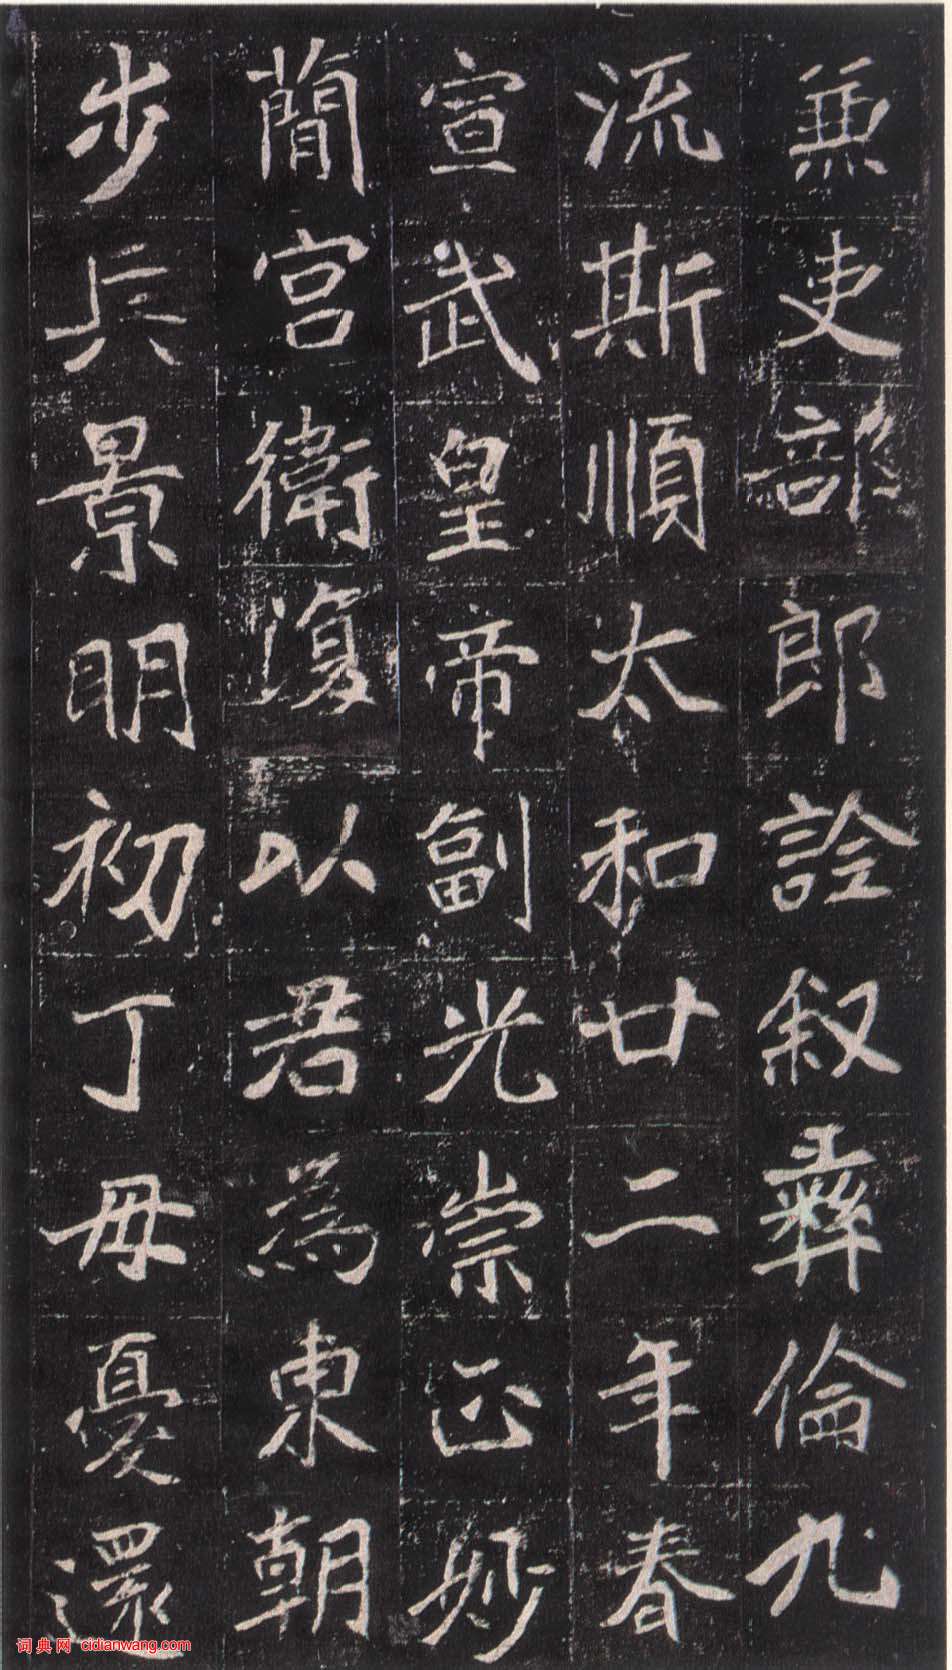 兼吏部郎詮叙彝倫九
流斯順太和廿二年春
宣武皇帝副光崇正妙
簡宮衛復以君為東朝
步兵景明初丁母憂還
词典网 cidianwang.com